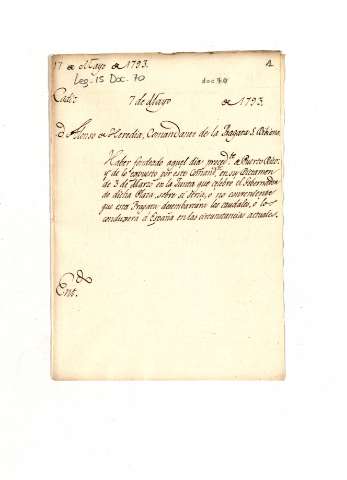 17 de Mayo de 1793. 1
Leg-15 Doc. 70 doc 70
Cadiz 7 de Mayo de 1793.
Dn Alonso de Heredia, Comandante de la Fragata S.
Haber fondeado aquel dia proced.te de Puerto Rico:
y de lo expuesto por este Comand.te en su Dictamen
de 3 de Marzo en la Junta que celebró el Gobernador
de dicha Plaza, sobre si sería, o no conveniente
que esta Fragata desembarcara los caudales, o los
condugera á España en las circunstancias actuales.
Ent.do